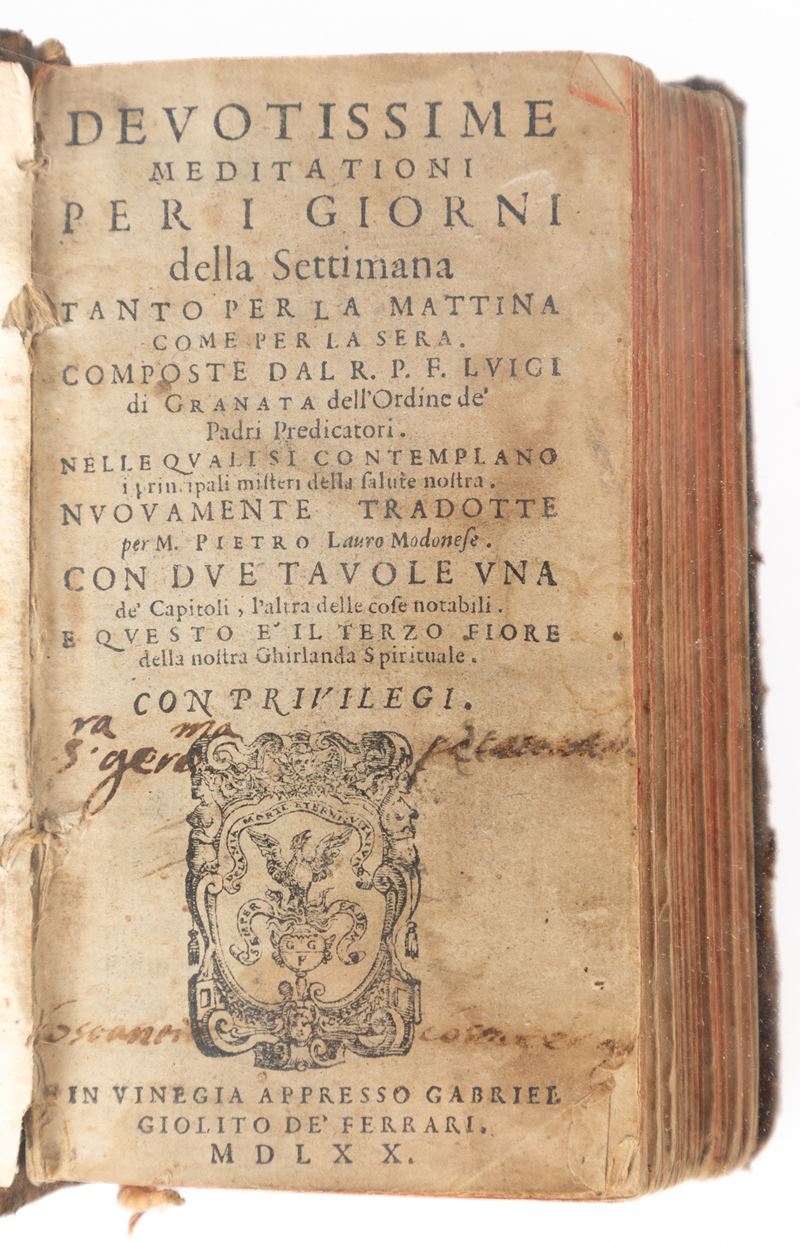 DEVOTISSIME
MEDITATIONI
PER I GIORNI
della Settimana
TANTO PER LA MATTINA
COME PER LA SERA.
COMPOSTE DAL R. P. F. LVIGI
di GRANATA dell'Ordine de'
Padri Predicatori.
NELLE QVALI SI CONTEMPLANO
i principali misteri della salute nostra.
NVOVAMENTE TRADOTTE
per M. PIETRO Lauro Modonese.
CON DVE TAVOLE VNA
de' Capitoli, l'altra delle cose notabili.
E QVESTO E' IL TERZO FIORE
della nostra Ghirlanda Spirituale.
CON PRIVILEGI.
ra ma
S. gero
DE LA MIA MORTE ETERNA VITA I VIVO
SEMPER EADEM
G G
F
IN VINEGIA APPRESSO GABRIEL
GIOLITO DE' FERRARI.
MDLXX.